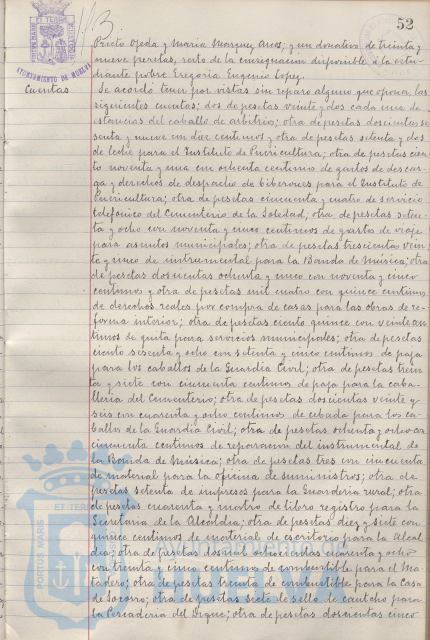 52
AYUNTAMIENTO DE HUELVA
Prieto Ojeda y Maria Marquez Arcos; y un donativo de treinta y
nueve pesetas, resto de la consignacion disponible a la estu-
diante pobre Gregoria Eugenio Lopez.
Cuentas
Se acordó tener por vistas sin reparo alguno que oponer, las
siguientes cuentas; dos de pesetas veinte y dos cada una de
estancias del caballo de arbitrios; otra de pesetas doscientas se-
senta y nueve con diez centimos y otra de pesetas setenta y dos
de leche para el Instituto de Puericultura; otra de pesetas cien-
to noventa y una con ochenta centimos de gastos de descar-
ga y derechos de despacho de biberones para el Instituto de
Puericultura; otra de pesetas cincuenta y cuatro de servicio
telefónico del Cementerio de la Soledad; otra de pesetas seten-
ta y ocho con noventa y cinco centimos de gastos de viaje
para asuntos municipales; otra de pesetas trescientas vein-
te y cinco de instrumental para la Banda de Música; otra
de pesetas doscientas ochenta y cinco con noventa y cinco
centimos y otra de pesetas mil cuatro con quince centimos
de derechos reales por compra de casas para las obras de re-
forma interior; otra de pesetas ciento quince con veinte cen-
timos de guita para servicios municipales; otra de pesetas
ciento sesenta y ocho con setenta y cinco centimos de paja
para los caballos de la Guardia Civil; otra de pesetas trein-
ta y siete con cincuenta centimos de paja para la caba-
lleria del Cementerio; otra de pesetas doscientas veinte y
seis con cuarenta y ocho centimos de cebada para los ca-
ballos de la Guardia Civil; otra de pesetas ochenta y ocho con
cincuenta centimos de reparacion del instrumental de
la Banda de Música; otra de pesetas tres con cincuenta
de material para la oficina de suministros; otra de
pesetas setenta de impresos para la Guarderia rural; otra
de pesetas cuarenta y cuatro de libro registro para la
Secretaria de la Alcaldia; otra de pesetas diez y siete con
quince centimos de material de escritorio para la Alcal-
dia; otra de pesetas dos mil ochocientas cuarenta y ocho
con treinta y cinco centimos de combustible para el Ma-
tadero; otra de pesetas treinta de combustible para la Casa
de Socorro; otra de pesetas siete de sello de cautchó para
la Pescaderia del Dique; otra de pesetas doscientas cinco
PORTUS MARIS
ET TERRE